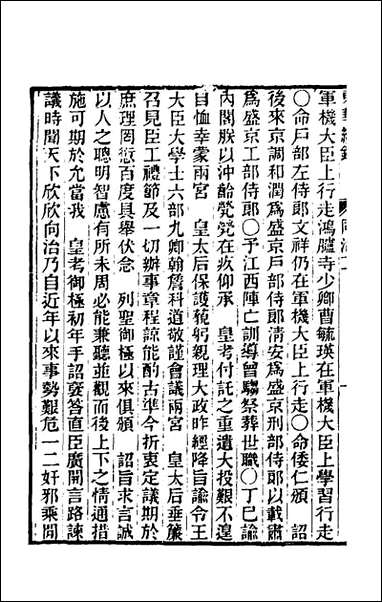 軍機大臣上行走鴻臚寺少卿曹毓瑛在軍機大臣上學習行走
〇命戶部左侍郎文祥仍在軍機大臣上行走〇命倭仁頒　詔
後來京調和潤爲盛京戶部侍郎清安爲盛京刑部侍郎以載肅
爲盛京工部侍郎〇予江西陣亡訓導曾驌祭葬世職〇丁巳諭
內閣朕以沖齡煢煢在疚仰承　皇考付託之重遺大投艱不遑
自恤幸蒙兩宮　皇太后保護藐躬親理大政昨經降旨諭令王
大臣大學士六部九卿翰詹科道敬謹會議兩宮　皇太后垂簾
召見臣工禮節及一切辦事章程諒能酌古準今折衷定議期於
庶理罔愆百度具舉伏念　列聖御極以來俱頒　詔旨求言誠
以人之聰明智慮有所未周必能兼聽並觀而後上下之情通措
施可期於允當我　皇考御極初年手詔褒答直臣廣開言路諫
議時聞天下欣欣向治乃自近年以來事勢艱危一二奸邪乘間